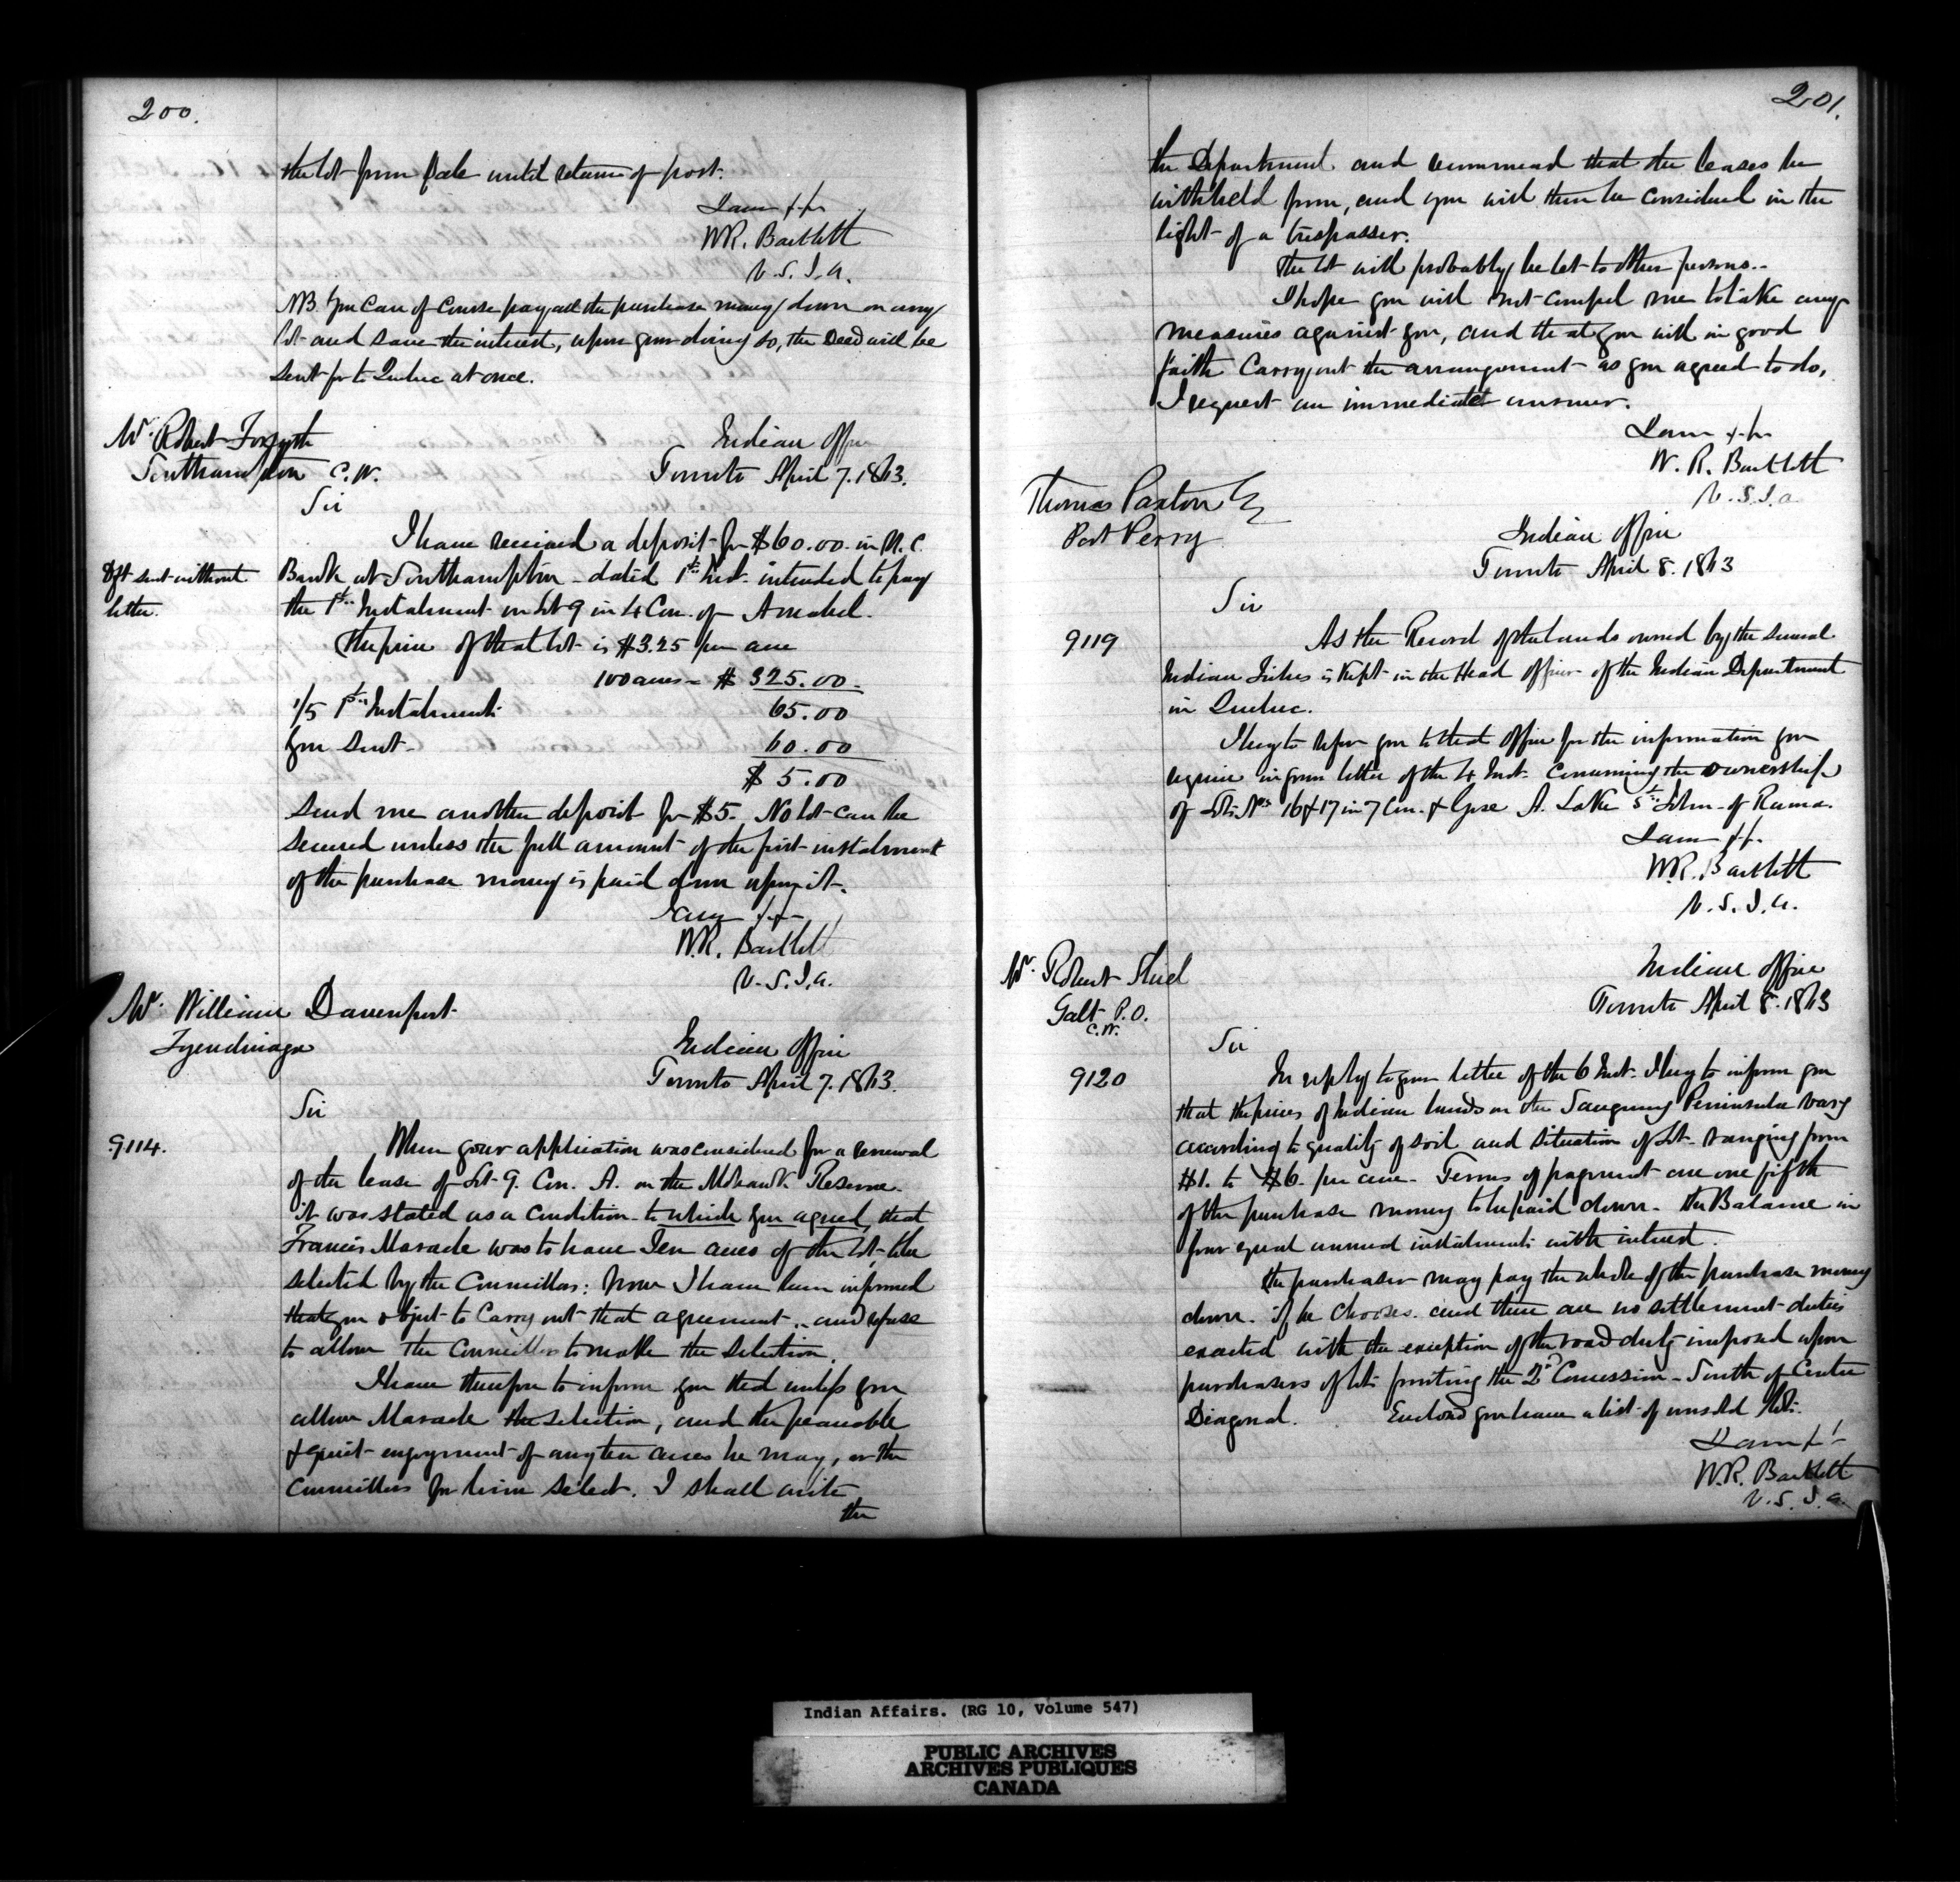 200.
the lot from sale until return of post.
I am &c
W.R. Bartlett
V.S.I.A.
NB. You can of course pay all the purchase money down on any
lot and save the interest, upon your doing so, the Deed will be
sent for to Quebec at once.
Mr. Robert Forsyth
Southampton C.W.
Indian Office
Toronto April 7. 1863.
Sir
I have received a deposit for $60.00 in U.C.
Dft sent without
letter.
Bank at Southampton - dated 1st Inst. intended to pay
the 1st Instalment on Lot 9 in 4 Con. of Amabel.
The price of that lot is $3.25 per acre
100 acres = $325.00
1/5 1st Instalment 65.00
You sent 60.00
$5.00
Send me another deposit for $5. No lot can be
secured unless the full amount of the first instalment
of the purchase money is paid down upon it.
I am &c
W.R. Bartlett
V.S.I.A.
Mr. William Davenport
Tyendinaga
Indian Office
Toronto April 7. 1863.
Sir
9114.
When your application was considered for a renewal
of the lease of Lot 9. Con. A. on the Mohawk Reserve
it was stated as a condition to which you agreed, that
Francis Maracle was to have Ten acres of the lot, to be
selected by the Councillors: now I have been informed
that you object to carry out that agreement and refuse
to allow the Councillors to make the selection.
I have therefore to inform you that unless you
allow Maracle the selection, and the peaceable
& quiet enjoyment of any ten acres he may, or the
Councillors for him select. I shall write
the
201.
the Department and recommend that the leases be
withheld from, and you will then be considered in the
light of a trespasser.
The lot will probably be let to other persons.
I hope you will not compel me to take any
measures against you, and that you will in good
faith carry out the arrangement as you agreed to do,
I request an immediate answer.
I am &c
W.R. Bartlett
V.S.I.A.
Thomas Paxton Esq
Port Perry
Indian Office
Toronto April 8. 1863
Sir
9119
As the Record of the lands owned by the several
Indian Tribes is kept in the Head Office of the Indian Department
in Quebec.
I beg to refer you to that Office for the information you
require in your letter of the 4 Inst. concerning the ownership
of Lots Nos 16 & 17 in 7 Con. & Gore A. Lake St. John - of Rama.
I am &c.
W.R. Bartlett
V.S.I.A.
Mr. Robert Shiel
Galt P.O.
C.W.
Indian Office
Toronto April 8. 1863
Sir
9120
In reply to your letter of the 6 Inst. I beg to inform you
that the prices of Indian lands in the Saugeeng Peninsula vary
according to quality of soil and situation of lot - ranging from
$1. to $6. per acre. Terms of payment are one fifth
of the purchase money to be paid down - the Balance in
four equal annual instalments with interest.
The purchaser may pay the whole of the purchase money
down if he chooses. and there are no settlement duties
exacted with the exception of the road duty imposed upon
purchasers of lots fronting the 2nd Concession - South of Centre
Diagonal. Enclosed you have a list of unsold lots.
I am &c
W.R. Bartlett
V.S.I.A.
Indian Affairs. (RG 10, Volume 547)
PUBLIC ARCHIVES
ARCHIVES PUBLIQUES
CANADA